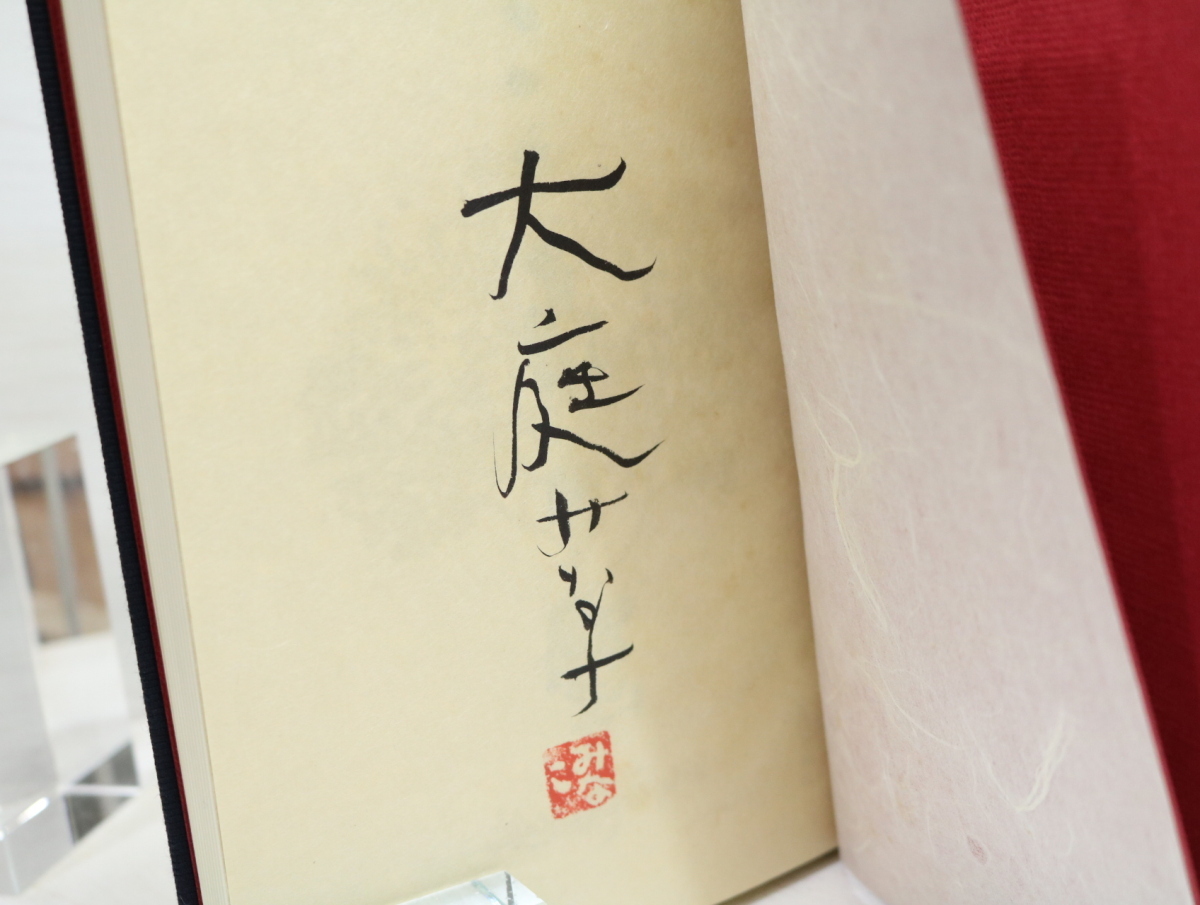 大庭みな子
みなこ